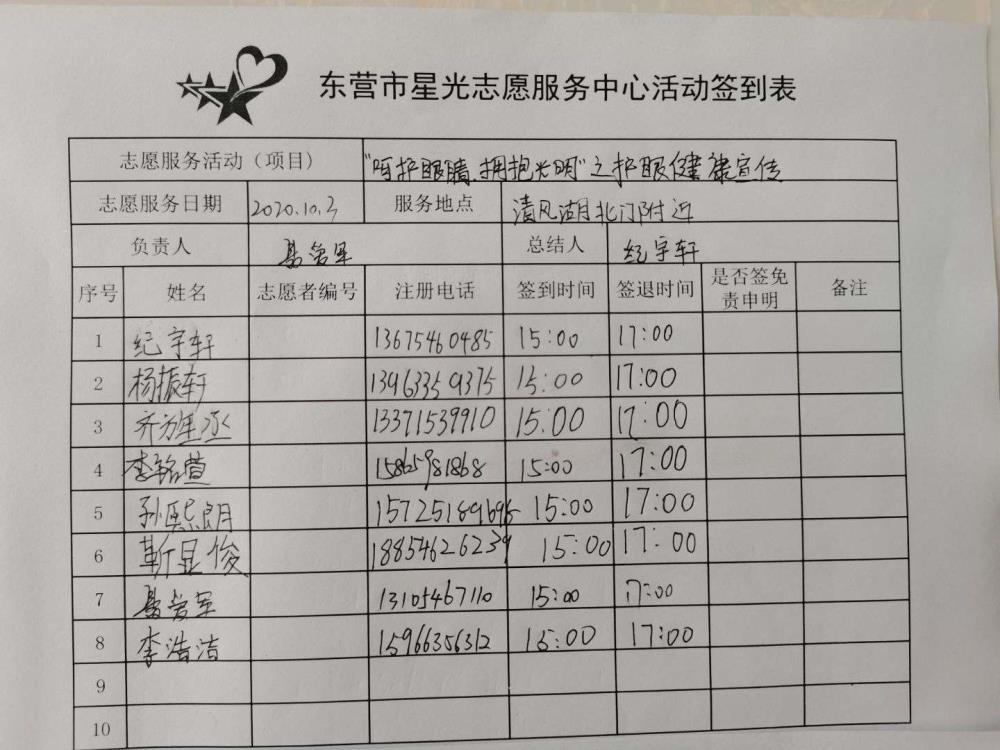 东营市星光志愿服务中心活动签到表
志愿服务活动（项目） "呵护眼睛、拥抱光明"之护眼健康宣传
志愿服务日期 2020.10.3 服务地点 清风湖北门附近
负责人 总结人 纪宇轩
序号 姓名 志愿者编号 注册电话 签到时间 签退时间 是否签免责申明 备注
1 纪宇轩 13675460485 15:00 17:00
2 杨振轩 13963359375 15:00 17:00
3 齐 丞 13371539910 15:00 17:00
4 李铭萱 15865981868 15:00 17:00
5 孙熙朗 15725189696 15:00 17:00
6 靳显俊 18854626239 15:00 17:00
7 13105467110 15:00 17:00
8 李浩洁 15966356312 15:00 17:00
9
10